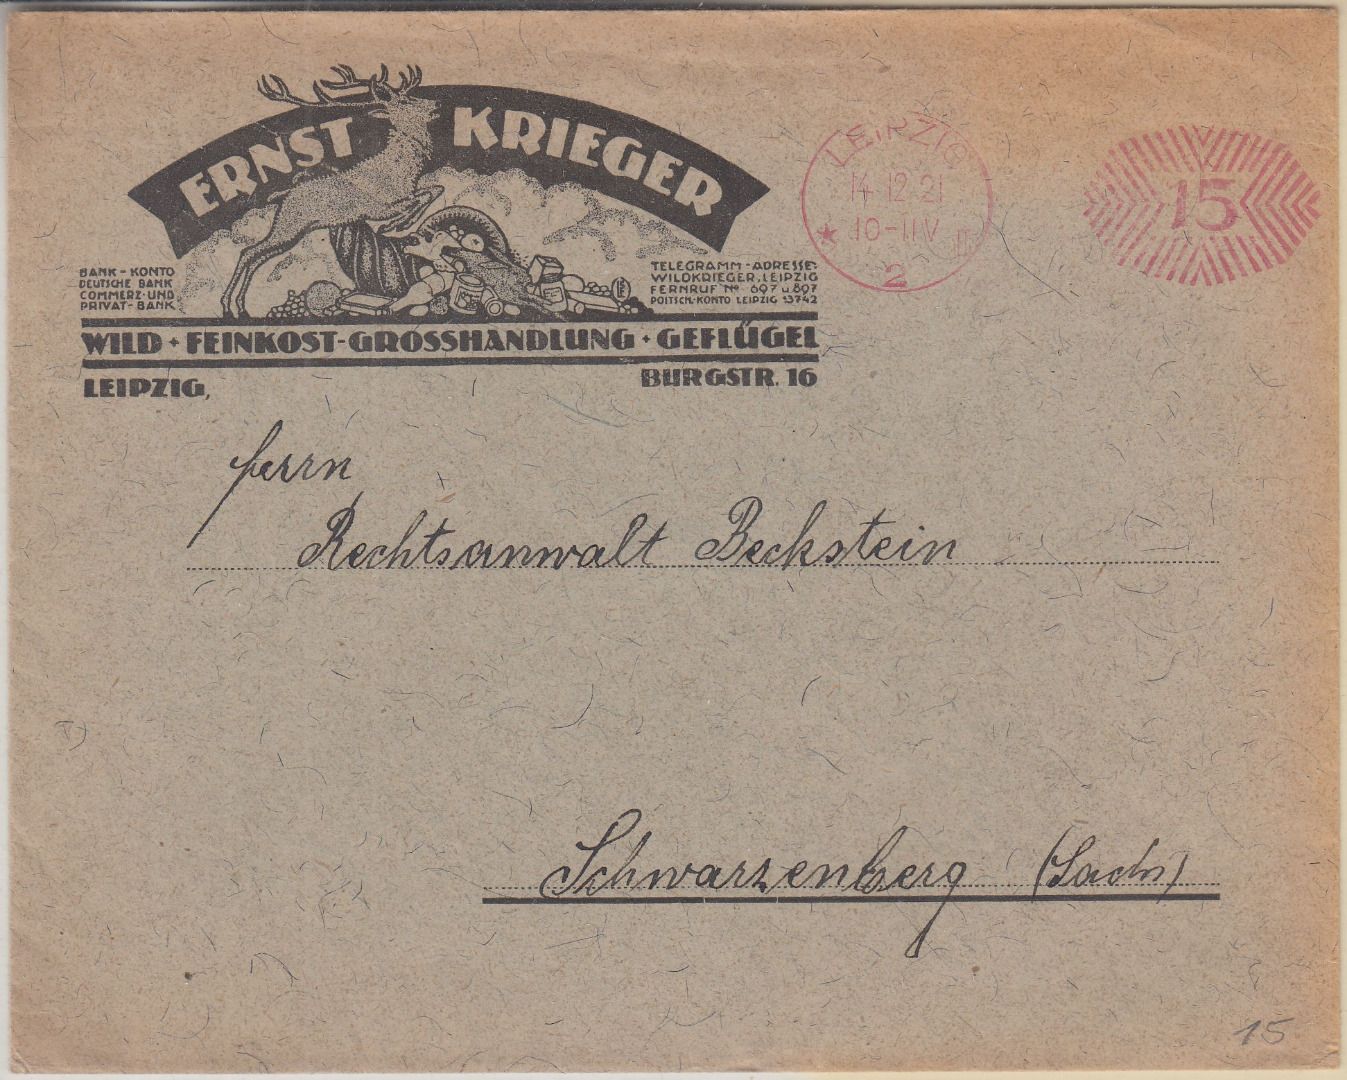 ERNST KRIEGER
BANK-KONTO
DEUTSCHE BANK
COMMERZ-UND
PRIVAT-BANK
TELEGRAMM-ADRESSE:
WILDKRIEGER, LEIPZIG
FERNRUF Nº 697 u 897
POSTSCH.-KONTO LEIPZIG 13742
WILD + FEINKOST-GROSSHANDLUNG + GEFLÜGEL
LEIPZIG,
BURGSTR. 16
LEIPZIG
14.12.21
10-11V
2
15
Herrn
Rechtsanwalt Beckstein
Schwarzenberg (Sachs)
15